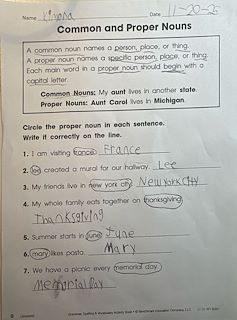 Name Kinara Date 11-20-25
Common and Proper Nouns
A common noun names a person, place, or thing.
A proper noun names a specific person, place, or thing.
Each main word in a proper noun should begin with a
capital letter.
Common Nouns: My aunt lives in another state.
Proper Nouns: Aunt Carol lives in Michigan.
Circle the proper noun in each sentence.
Write it correctly on the line.
1. I am visiting france. France
2. lee created a mural for our hallway. Lee
3. My friends live in new york city. New York City
4. My whole family eats together on thanksgiving.
Thanksgiving
5. Summer starts in june. June
6. mary likes pasta. Mary
7. We have a picnic every memorial day.
Memorial Day
Grammar, Spelling & Vocabulary Activity Book • © Benchmark Education Company, LLC